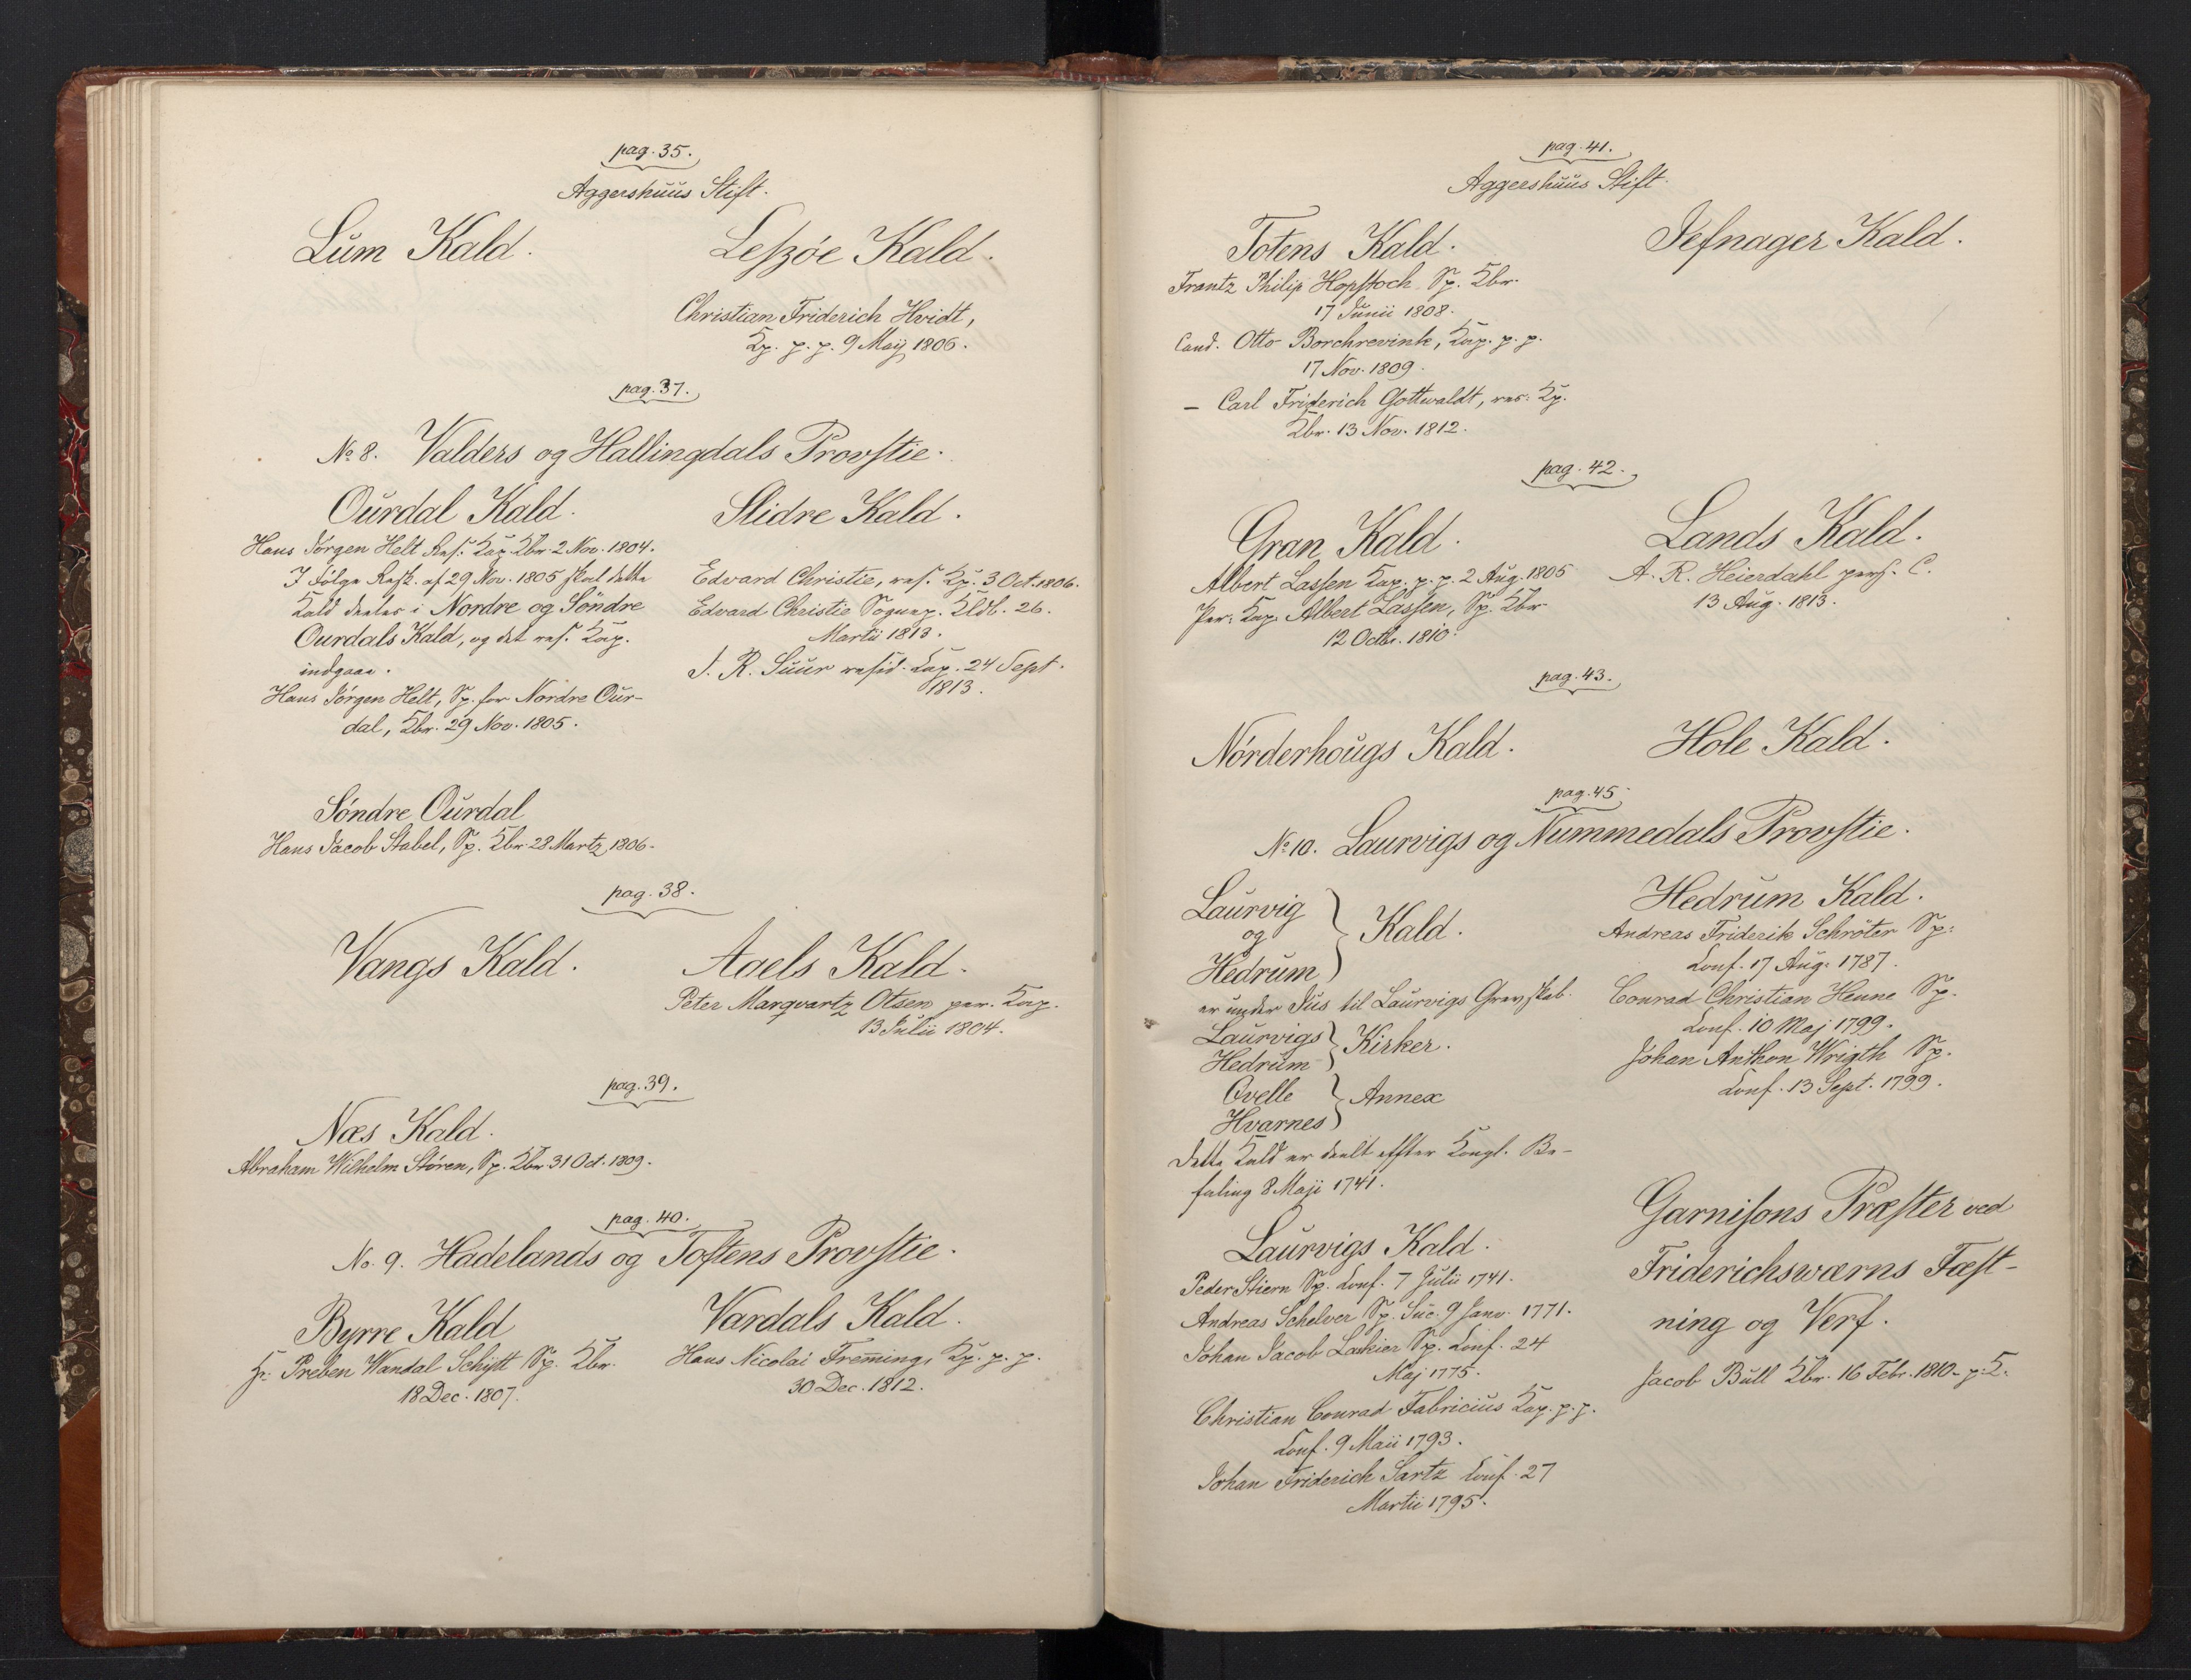 pag. 35.
Aggershuus Stift.
Lum Kald.
Leszöe Kald.
Christian Friderich Hvidt,
Kp. p. p. 9 Maij 1806.
pag. 37.
No 8. Valders og Hallingdals Provstie.
Ourdal Kald.
Hans Jørgen Helt Res. Kap. Kbr. 2 Nov. 1804.
I følge Resk. af 29 Nov. 1805 skal dette
Kald deeles i Nordre og Søndre
Ourdals Kald, og det res. Kap.
indgaae.
Hans Jørgen Helt, Sp. for Nordre Our-
dal, Kbr. 29 Nov. 1805.
Søndre Ourdal
Hans Jacob Stabel, Sp. Kbr. 28 Martz 1806.
Slidre Kald.
Edvard Christie, res. Kp. 3 Oct. 1806.
Edvard Christie Sognep. Kldb. 26.
Martii 1813.
J. R. Suur resid. Kap. 24 Sept.
1813.
pag. 38.
Vangs Kald.
Aaels Kald.
Peter Marqvartz Otsen per. Kap.
13 Julii 1804.
pag. 39.
Næs Kald.
Abraham Wilhelm Støren, Sp. Kbr. 31 Oct. 1809.
pag. 40.
No. 9. Hadelands og Toftens Provstie.
Byrre Kald
Hr. Preben Wandal Schijtt Sp. Kbr.
18 Dec. 1807.
Vardals Kald.
Hans Nicolai Fremming, Kp. p. p.
30 Dec. 1812.
pag. 41.
Aggershuus Stift.
Totens Kald.
Frantz Philip Hopstock Sp. Kbr.
17 Junii 1808.
Cand. Otto Borchrevink, Kap. p. p.
17 Nov. 1809.
– Carl Friderich Gottwaldt, res: Kp.
Kbr. 13 Nov. 1812.
Jefnager Kald.
pag. 42.
Gran Kald.
Albert Lassen Kap. p. p. 2 Aug. 1805
Per: Kap. Albert Lassen, Sp. Kbr.
12 Octbr. 1810.
Lands Kald.
A. R. Heierdahl pers. C.
13 Aug. 1813.
pag. 43.
Nørderhougs Kald.
Hole Kald.
pag. 45
No 10. Laurvigs og Nummedals Provstie.
Laurvig
og
Hedrum
Kald.
er under Jus til Laurvigs Grevskab.
Laurvigs
Hedrum
Kirker.
Qvelle
Hvarnes
Annex
Dette Kald er deelt efter Kongl. Be-
faling 8 Maji 1741.
Laurvigs Kald.
Peder Stiern Sp. Conf. 7 Julii 1741.
Andreas Schelver Sp. Suc. 9 Janv. 1771.
Johan Jacob Laskier Sp. Conf. 24
Maj 1775.
Christian Conrad Fabricius Kap. p. p.
Conf. 9 Maii 1793.
Johan Friderich Sartz Conf. 27
Martii 1795.
Hedrum Kald.
Andreas Friderik Schröter Sp.
Conf. 17 Aug. 1787.
Conrad Christian Henne Sp.
Conf. 10 Maj 1799.
Johan Anthon Wrigth Sp.
Conf. 13 Sept. 1799.
Garnisons Præster ved
Friderichsværns Fæst-
ning og Verf.
Jacob Bull Kbr. 16 Febr. 1810. p. K.